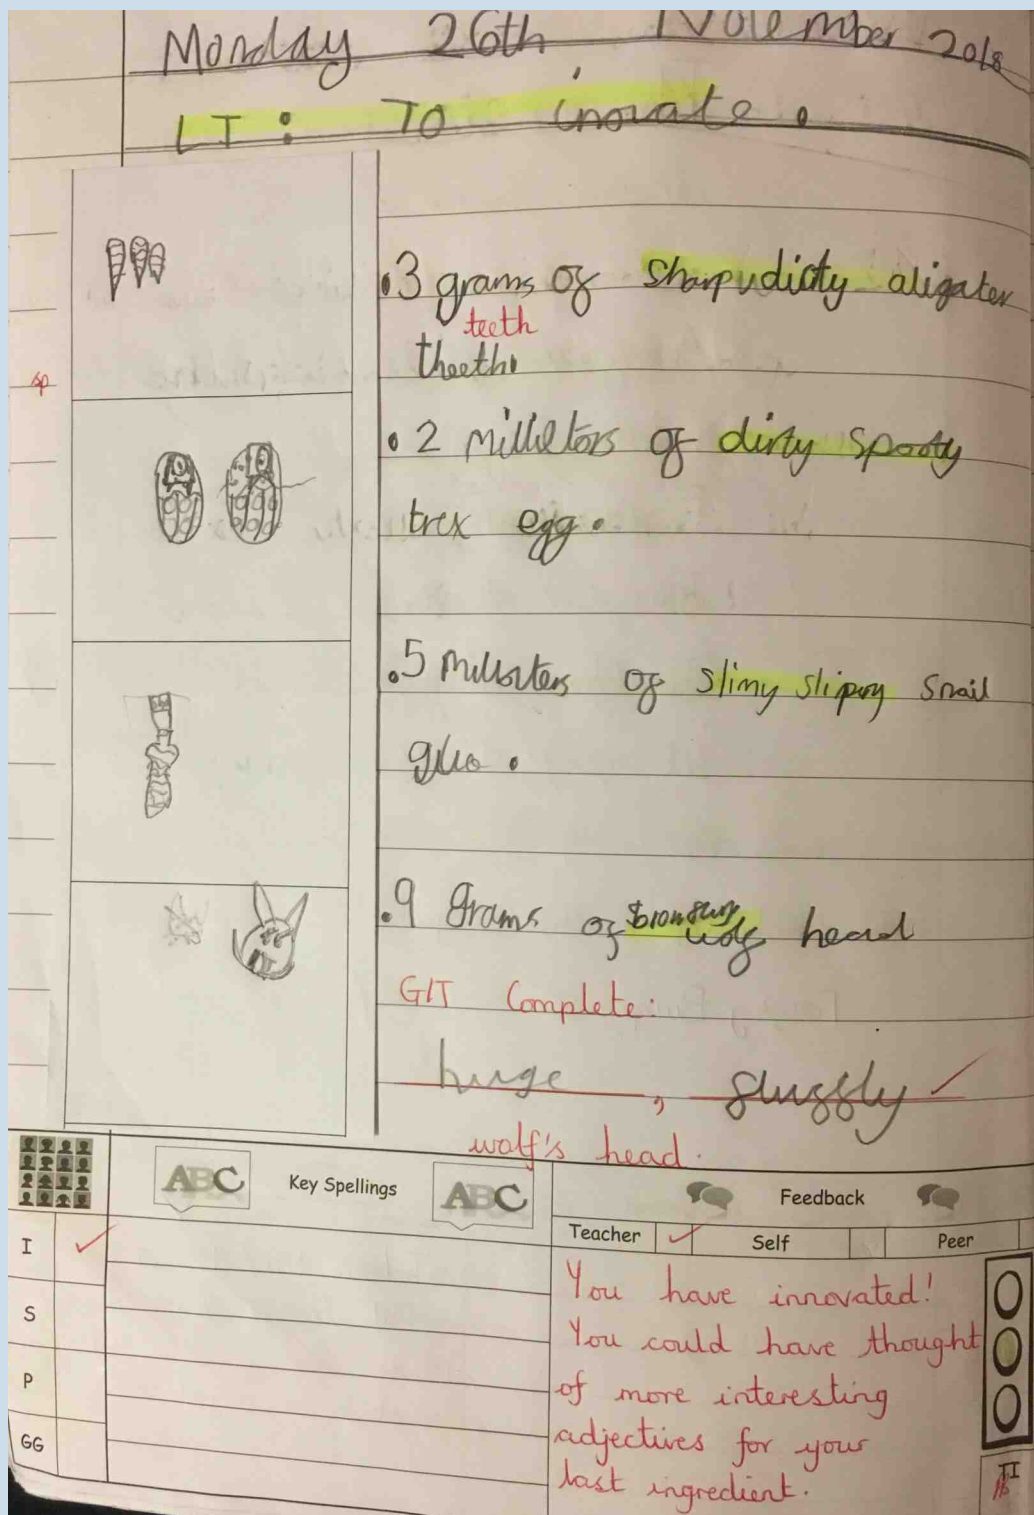 Monday 26th November 2018
LI: To inovate.
.3 grams of sharp, dirty aligater
teeth
theeth.
sp
.2 millietors of dirty spooty
trex egg.
.5 of slimy slipory snail
glue.
.9 Grams of wolf head
GIT Complete:
huge, fluffly ✓
wolf's head.
ABC Key Spellings ABC
Feedback
Teacher ✓ Self Peer
I ✓
S
P
GG
You have innovated!
You could have thought
of more interesting
adjectives for your
last ingredient.